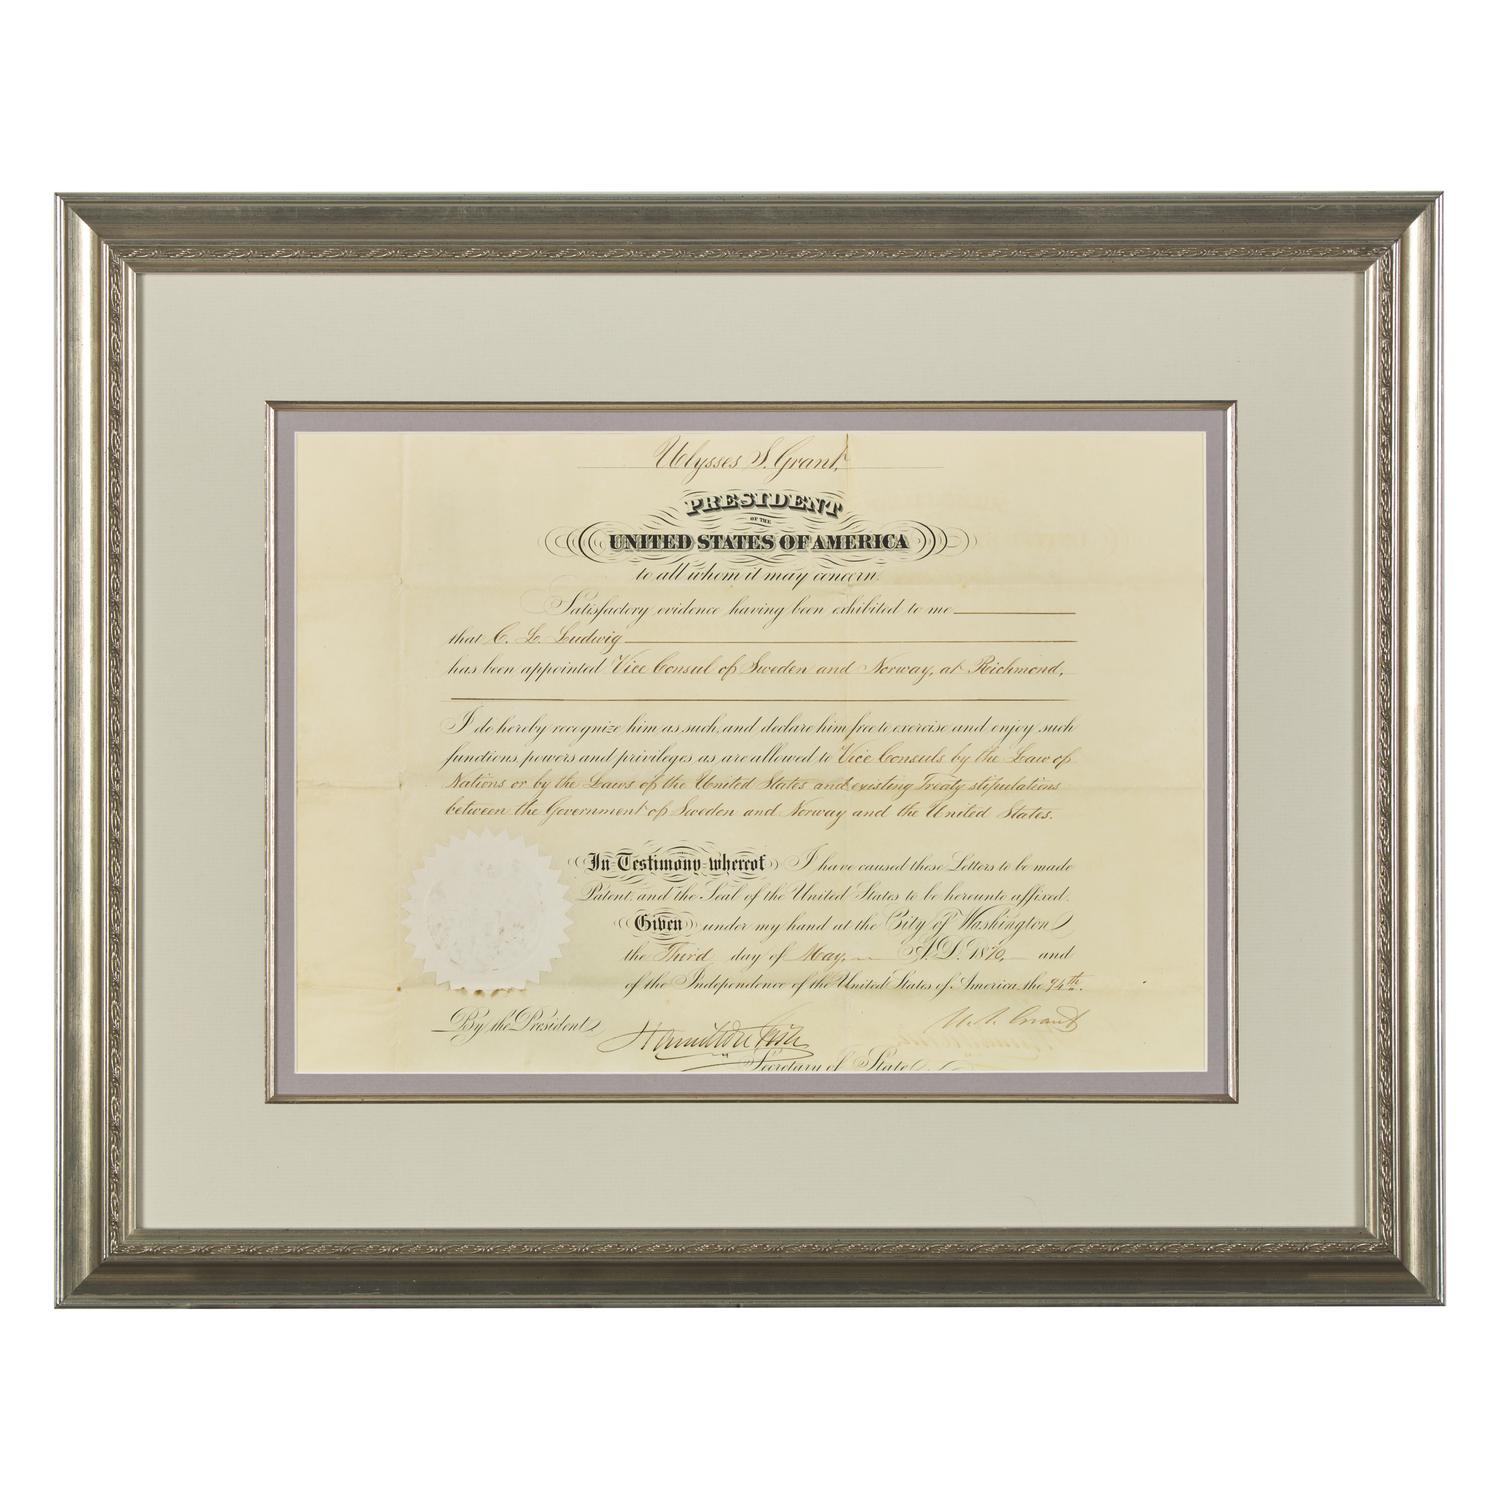 Ulysses S. Grant,
PRESIDENT
OF THE
UNITED STATES OF AMERICA
to all whom it may concern.
Satisfactory evidence having been exhibited to me
that C. L. Ludwig
has been appointed Vice Consul of Sweden and Norway, at Richmond,
I do hereby recognize him as such, and declare him free to exercise and enjoy such
functions, powers and privileges as are allowed to Vice Consuls by the Law of
Nations or by the Laws of the United States and existing Treaty stipulations
between the Government of Sweden and Norway and the United States.
In Testimony whereof I have caused these Letters to be made
Patent, and the Seal of the United States to be hereunto affixed.
Given under my hand at the City of Washington
the Third day of May, A.D. 1870, and
of the Independence of the United States of America, the 94th.
By the President
U. S. Grant
Hamilton Fish
Secretary of State